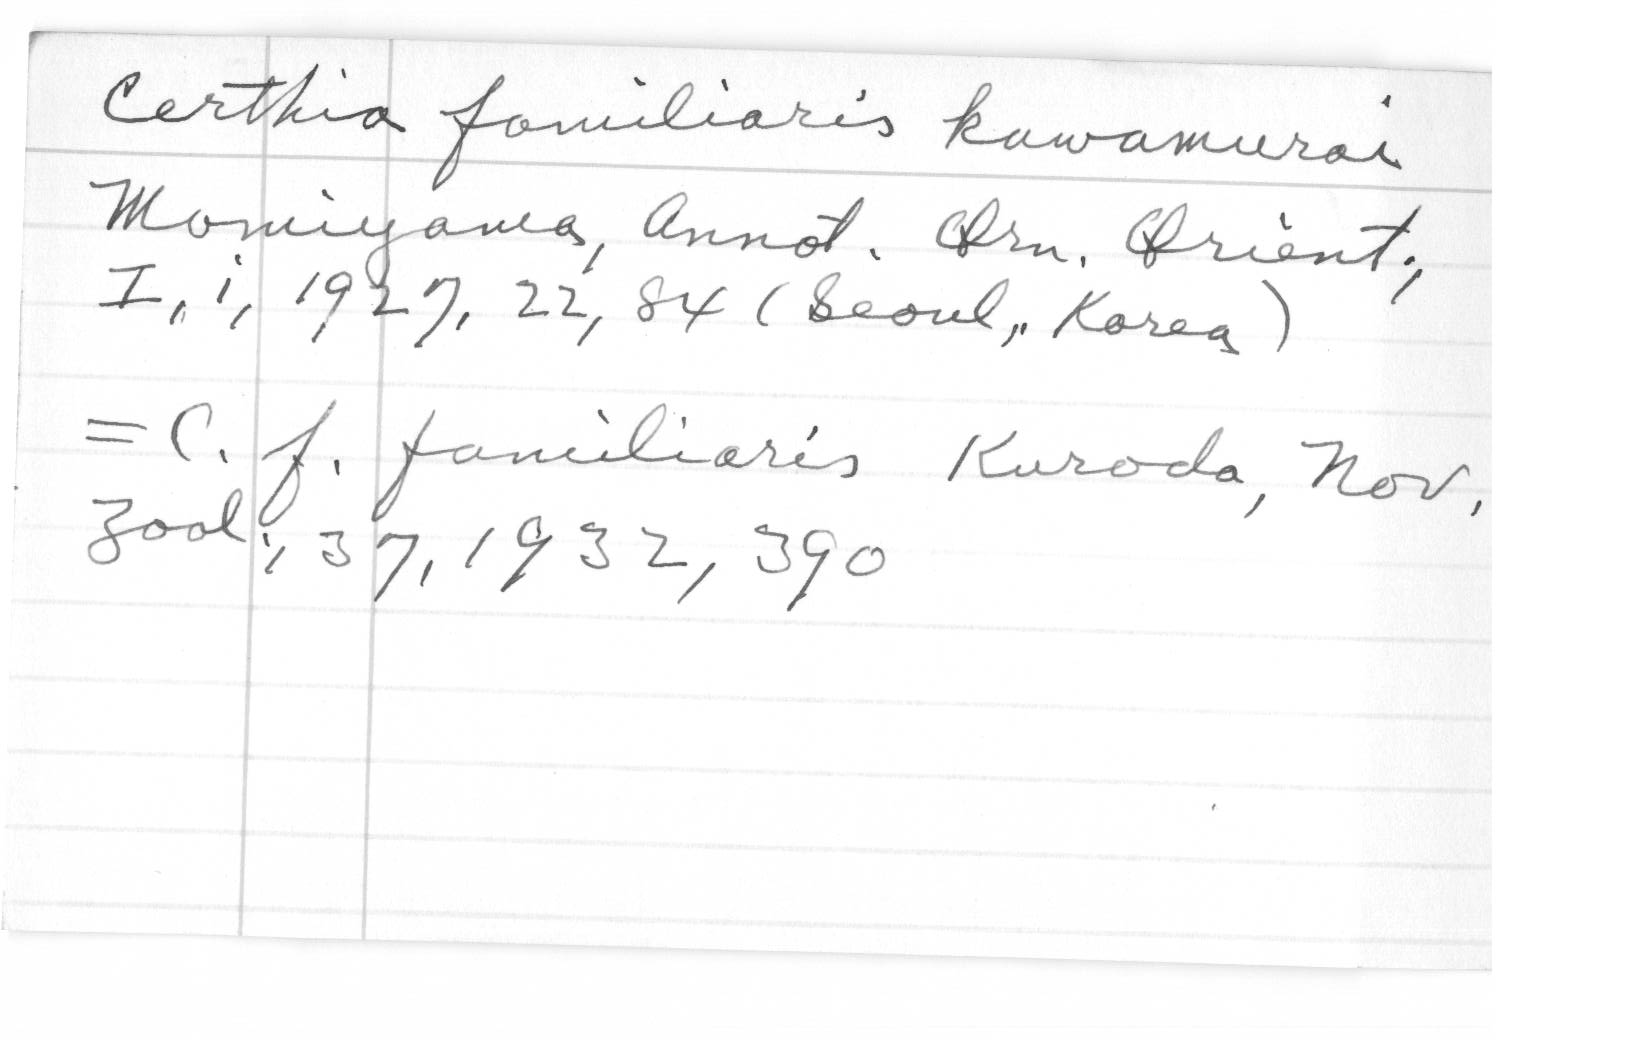 Certhia familiaris kawamurai
Momiyama, Annot. Orn. Orient.,
I, i, 1927, 22, 84 (Seoul, Korea)
= C. f. familiaris Kuroda, Nov.
Zool., 37, 1932, 390